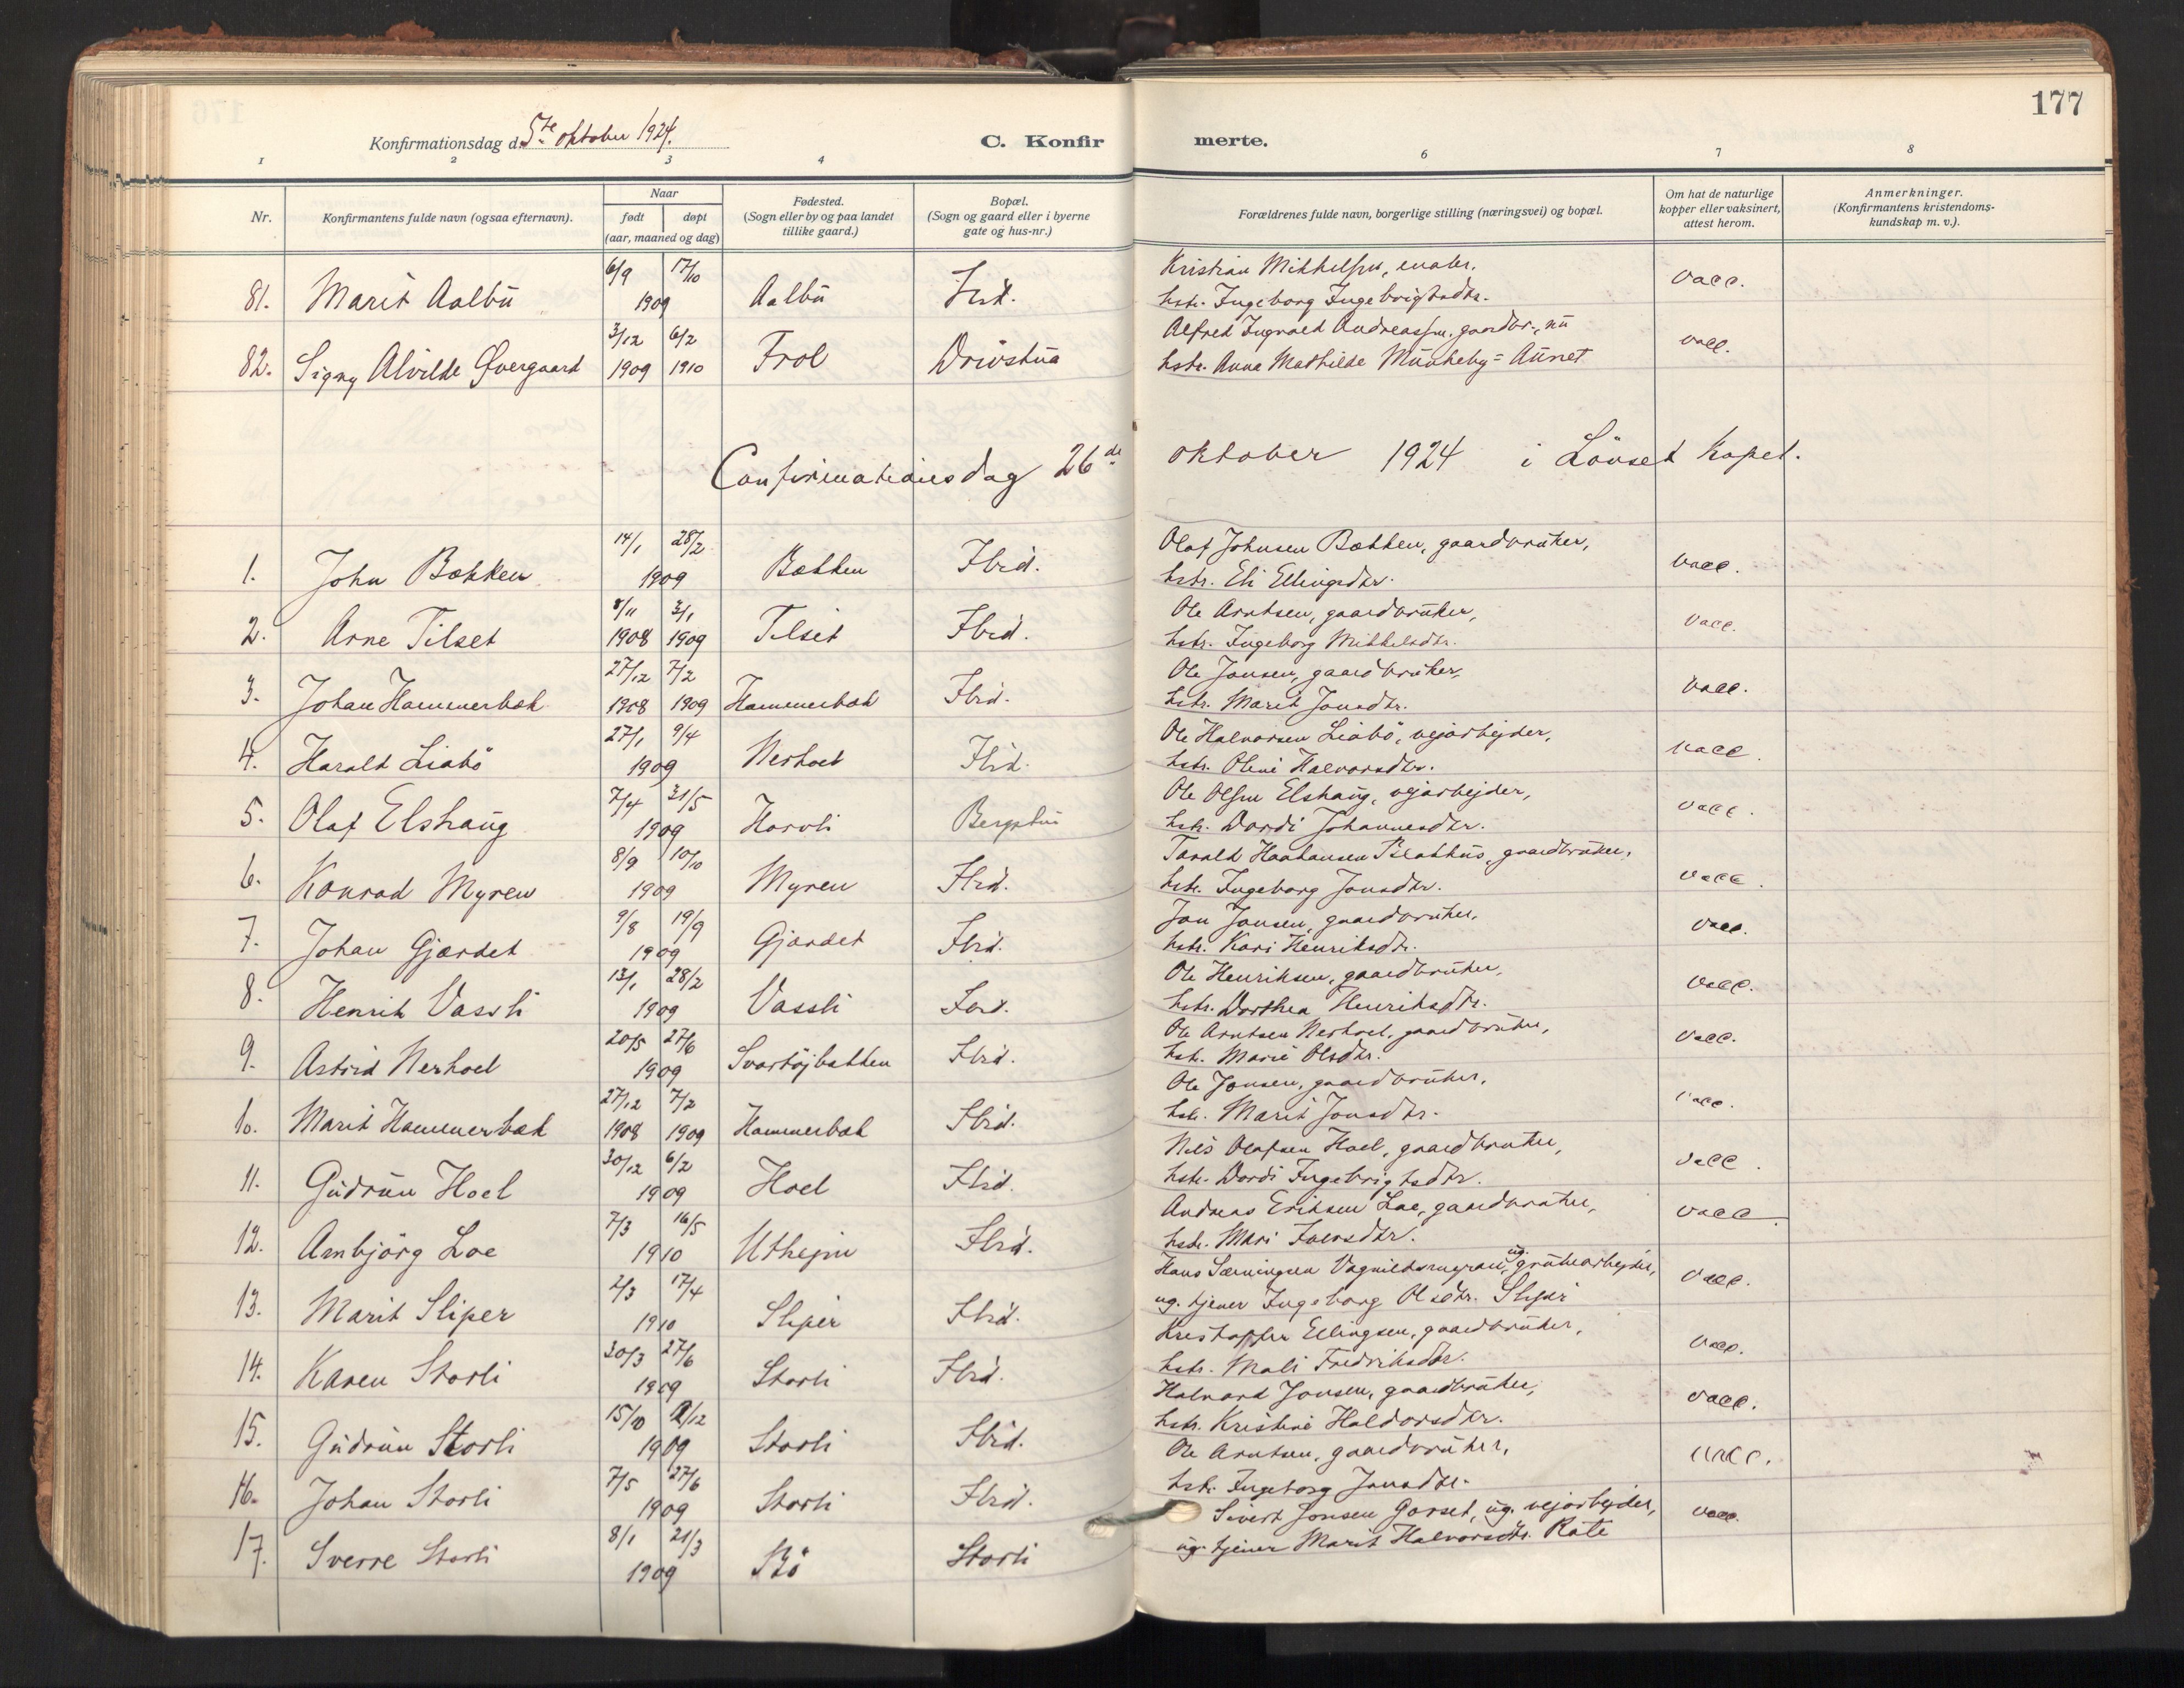 177
Konfirmationsdag d. 5te oktober 1924.
C. Konfir merte.
1 2 3 4 6 7 8
Nr. Konfirmantens fulde navn (ogsaa efternavn). Naar født døpt (aar, maaned og dag) Fødested. (Sogn eller by og paa landet tillike gaard.) Bopæl. (Sogn og gaard eller i byerne gate og hus-nr.) Forældrenes fulde navn, borgerlige stilling (næringsvei) og bopæl. Om hat de naturlige kopper eller vaksinert, attest herom. Anmerkninger. (Konfirmantens kristendoms- kundskap m. v.).
81. Marit Aalbu 6/9 17/10 1909 Aalbu Ibid. Kristian Mikkelsen,
hstr. Ingeborg Ingebrigtsdtr. vacc.
82. Signy Alvilde Øvergaard 3/12 1909 6/2 1910 Frol Drivstua Alfred Ingvald Andreassen, gaardbr., nu
hstr. Anna Mathilde Munkeby = Aunet vacc.
Confirmationsdag 26de oktober 1924 i Lönset Kapel.
1. John Bækken 14/1 28/2 1909 Bækken Ibid. Olaf Johnsen Bækken, gaardbruker,
hstr. Eli Ellingsdtr. vacc.
2. Arne Tilset 8/11 1908 3/1 1909 Tilset Ibid. Ole Arntsen, gaardbruker,
hstr. Ingeborg Mikkelsdtr. vacc.
3. Johan Hammerbæk 27/12 1908 7/2 1909 Hammerbæk Ibid. Ole Jonsen, gaardbruker,
hstr. Marit Jonsdtr. vacc.
4. Harald Liabö 27/1 9/4 1909 Nerhoel Ibid. Ole Halvorsen Liabö, vejarbejder,
hstr. Oline Halvorsdtr. vacc.
5. Olaf Elshaug 7/4 31/5 1909 Horvli Ole Olsen Elshaug, vejarbejder,
hstr. Dordi Johannesdtr. vacc.
6. Konrad Myren 8/9 10/10 1909 Myren Ibid. Tarald gaardbruker,
hstr. Ingeborg Jonsdtr. vacc.
7. Johan Gjærdet 9/8 19/9 1909 Gjærdet Ibid. Jon Jonsen, gaardbruker,
hstr. Kari Henriksdtr. vacc.
8. Henrik Vassli 13/1 28/2 1909 Vassli Ibid. Ole Henriksen, gaardbruker,
hstr. Dorthea Henriksdtr. vacc.
9. Astrid Nerhoel 20/5 27/6 1909 Svartöjbakken Ibid. Ole Arntsen Nerhoel, gaardbruker,
hstr. Marie Olsdtr. vacc.
10. Marit Hammerbæk 27/12 1908 7/2 1909 Hammerbæk Ibid. Ole Jonsen, gaardbruker,
hstr. Marit Jonsdtr. vacc.
11. Gudrun Hoel 30/12 6/2 1909 Hoel Ibid. Nils Olafsen Hoel, gaardbruker,
hstr. Dordi Ingebrigtsdtr. vacc.
12. Arnbjörg Loe 7/3 16/5 1910 Uthejm Ibid. Andreas Eriksen Loe, gaardbruker,
hstr. Mari Iversdtr. vacc.
13. Marit Sliper 2/3 17/4 1910 Sliper Ibid. Hans ug. grubearbejder,
ug. tjener Ingeborg Olsdtr. Sliper vacc.
14. Karen Storli 30/3 27/6 1909 Storli Ibid. Kristoffer Ellingsen, gaardbruker,
hstr. Mali Fredriksdtr. vacc.
15. Gudrun Storli 15/10 12/12 1909 Storli Ibid. Halvard Jonsen, gaardbruker,
hstr. Kristine Haldorsdtr. vacc.
16. Johan Storli 7/5 27/6 1909 Storli Ibid. Ole Arntsen, gaardbruker,
hstr. Ingeborg Jonsdtr. vacc.
17. Sverre Storli 8/1 21/3 1909 Storli Sivert Jonsen Gorset, ug. vejarbejder,
ug. tjener Marit Halvorsdtr. Röte vacc.